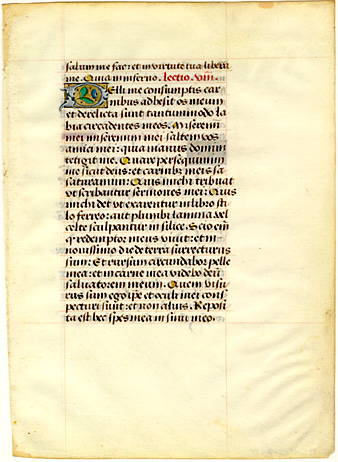 saluum me fac: et in virtute tua libera
me. Quia in inferno. Lectio viii.
Pelli mee consumptis car
nibus adhesit os meum
et derelicta sunt tantummodo la
bia circa dentes meos. Miseremi
mei miseremini mei saltem vos
amici mei: quia manus domini
tetigit me. Quare persequimini
me sicut deus: et carnibus meis sa
turamini. Quis michi tribuat
ut scribantur sermones mei: Quis
michi det ut exarentur in libro sti
lo ferreo: aut plumbi lamina vel
celte sculpantur in silice. Scio enim
qd redemptor meus vivit: et in
novissimo die de terra surrecturus
sum: Et rursum circundabor pelle
mea: et in carne mea videbo deum
salvatorem meum. Quem visu
rus sum ego ipse et oculi mei cons
pecturi sunt: et non alius. Reposi
ta est hec spes mea in sinu meo.